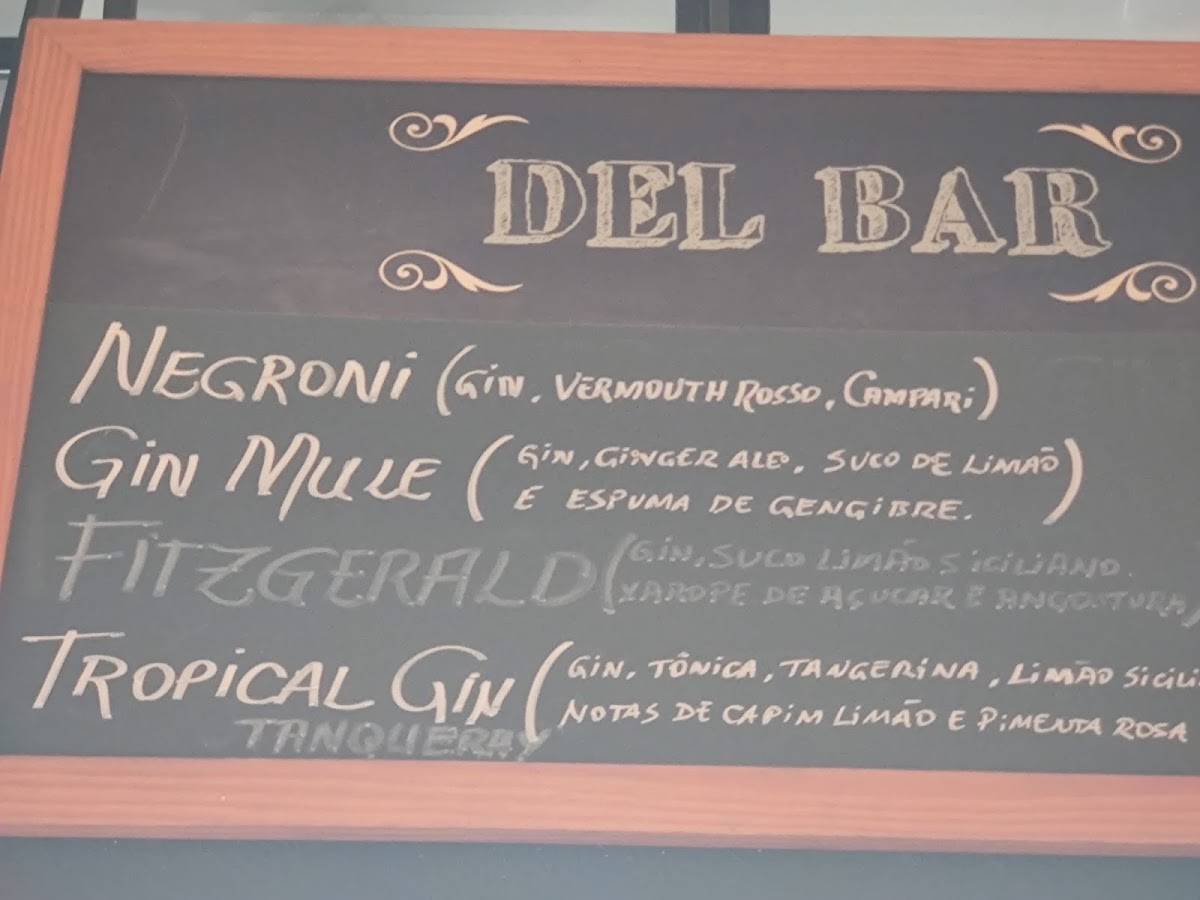 DEL BAR
NEGRONI (GIN, VERMOUTH ROSSO, CAMPARI)
GIN MULE (GIN, GINGER ALE, SUCO DE LIMÃO
E ESPUMA DE GENGIBRE.)
FITZGERALD (GIN, SUCO LIMÃO SICILIANO.
XAROPE DE AÇUCAR E ANGOSTURA)
TROPICAL GIN (GIN, TÔNICA, TANGERINA, LIMÃO SICILI
NOTAS DE CAPIM LIMÃO E PIMENTA ROSA
TANQUERAY